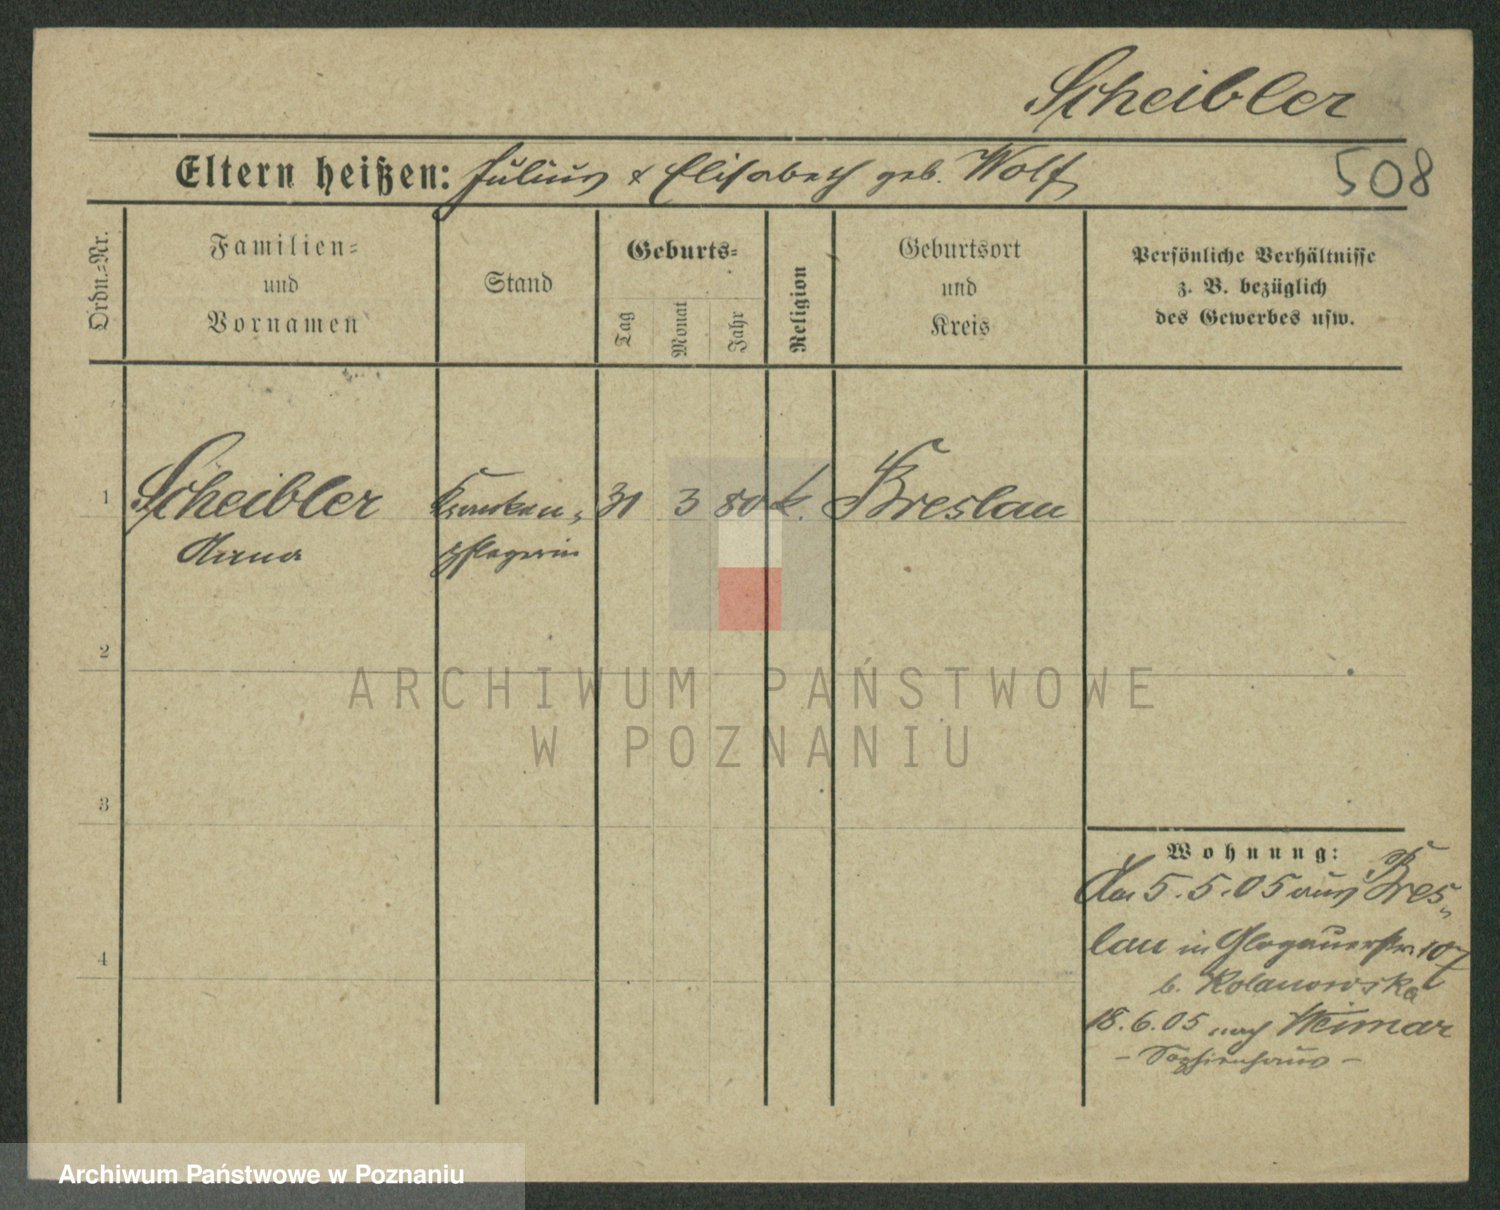 Scheibler
Eltern heißen: Julius & Elisabeth geb. Wolf
508
Ordn.=Nr.
Familien=
und
Vornamen
Stand
Geburts=
Tag
Monat
Jahr
Religion
Geburtsort
und
Kreis
Persönliche Verhältnisse
z. B. bezüglich
des Gewerbes usw.
1 Scheibler Kranken= 31 3 80 k. Breslau
Anna pflegerin
2
3
4
Wohnung:
Am 5.5.05 aus Bres=
lau in Glogauerstr. 107
b. Kolanowska
18.6.05 nach Weimar
- Sophienhaus -
ARCHIWUM PAŃSTWOWE
W POZNANIU
Archiwum Państwowe w Poznaniu